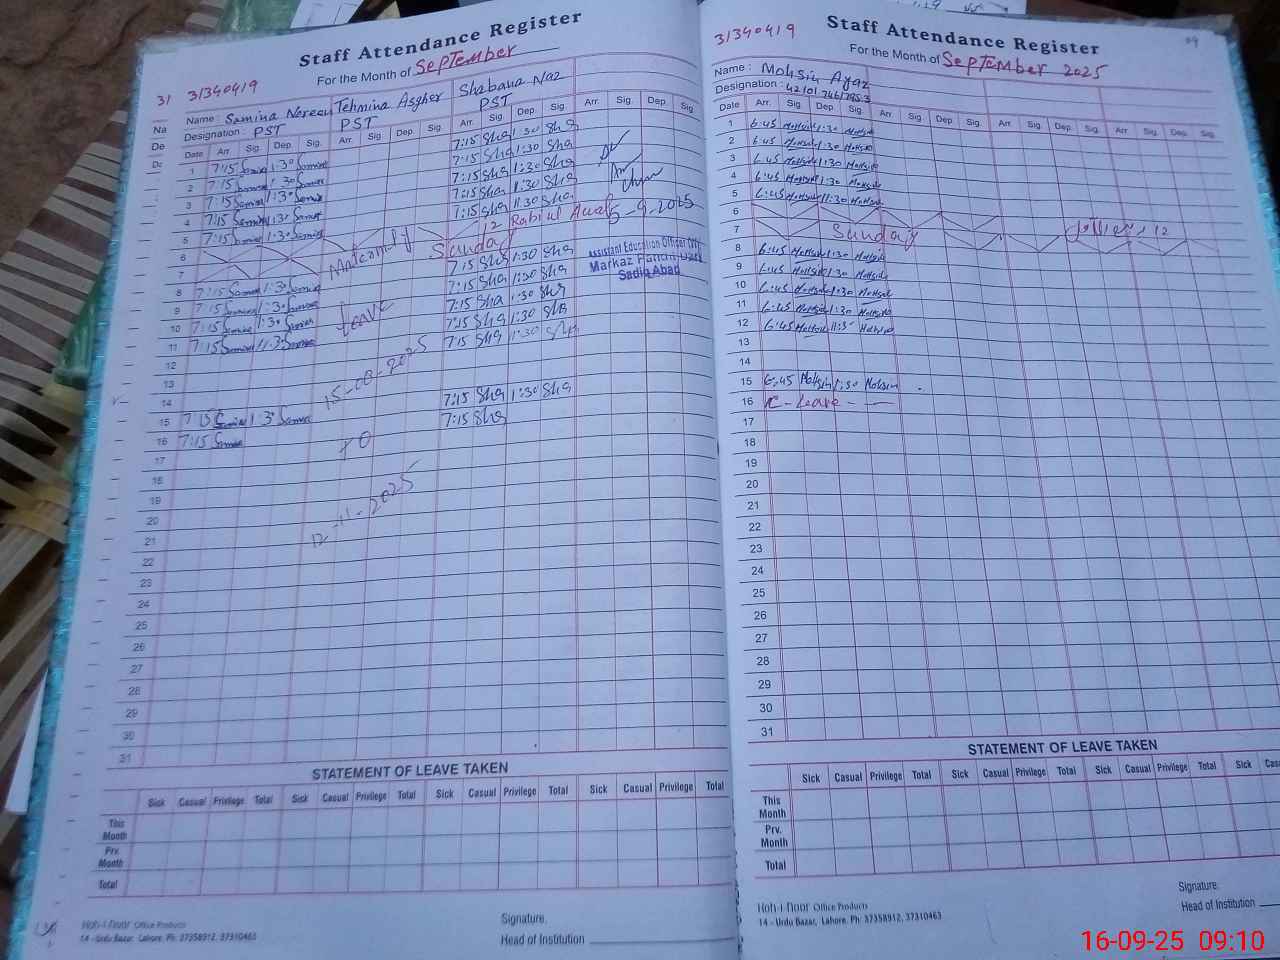 Staff Attendance Register
For the Month of September
31 31340419
Name: Samina Noreen Tehmina Asgher Shabana Naz
Designation: PST PST PST
Date Arr. Sig. Dep. Sig. Arr. Sig. Dep. Sig. Arr. Sig. Dep. Sig. Arr. Sig. Dep. Sig.
1 7:15 Samina 1:30 Samina 7:15 Sha 1:30 Sha
2 7:15 Samina 1:30 Samina 7:15 Sha 1:30 Sha
3 7:15 Samina 1:30 Samina 7:15 Sha 1:30 Sha
4 7:15 Samina 1:30 Samina 7:15 Sha 1:30 Sha
5 7:15 Samina 1:30 Samina 7:15 Sha 1:30 Sha
5-9-2025
6 12 Rabiul Awal
7 Sunday
Maternity
Leave
15-08-2025
TO
12-11-2025
Assistant Education Officer
Markaz
Sadiq Abad
8 7:15 Samina 1:30 Samina 7:15 Sha 1:30 Sha
9 7:15 Samina 1:30 Samina 7:15 Sha 1:30 Sha
10 7:15 Samina 1:30 Samina 7:15 Sha 1:30 Sha
11 7:15 Samina 1:30 Samina 7:15 Sha 1:30 Sha
12 7:15 Sha 1:30 Sha
13
14
15 7:15 Samina 1:30 Samina 7:15 Sha 1:30 Sha
16 7:15 Samina 7:15 Sha
17
18
19
20
21
22
23
24
25
26
27
28
29
30
31
STATEMENT OF LEAVE TAKEN
Sick Casual Privilege Total Sick Casual Privilege Total Sick Casual Privilege Total Sick Casual Privilege Total
This Month
Prv. Month
Total
Office Products
14 - Urdu Bazar, Lahore. Ph: 37358912, 37310463
Signature.
Head of Institution
Staff Attendance Register
31340419
For the Month of September 2025
Name: Mohsin Ayaz
Designation:
Date Arr. Sig. Dep. Sig. Arr. Sig. Dep. Sig. Arr. Sig. Dep. Sig.
1 6:45 Mohsin 1:30 Mohsin
2 6:45 Mohsin 1:30 Mohsin
3 6:45 Mohsin 1:30 Mohsin
4 6:45 Mohsin 1:30 Mohsin
5 6:45 Mohsin 1:30 Mohsin
6
7 Sunday
8 6:45 Mohsin 1:30 Mohsin
9 6:45 Mohsin 1:30 Mohsin
10 6:45 Mohsin 1:30 Mohsin
11 6:45 Mohsin 1:30 Mohsin
12 6:45 Mohsin 1:30 Mohsin
13
14
15 6:45 Mohsin 1:30 Mohsin
16 C - Leave -
17
18
19
20
21
22
23
24
25
26
27
28
29
30
31
STATEMENT OF LEAVE TAKEN
Sick Casual Privilege Total Sick Casual Privilege Total Sick Casual Privilege Total Sick
This Month
Prv. Month
Total
Office Products
14 - Urdu Bazar, Lahore. Ph: 37358912, 37310463
Signature.
Head of Institution
16-09-25 09:10